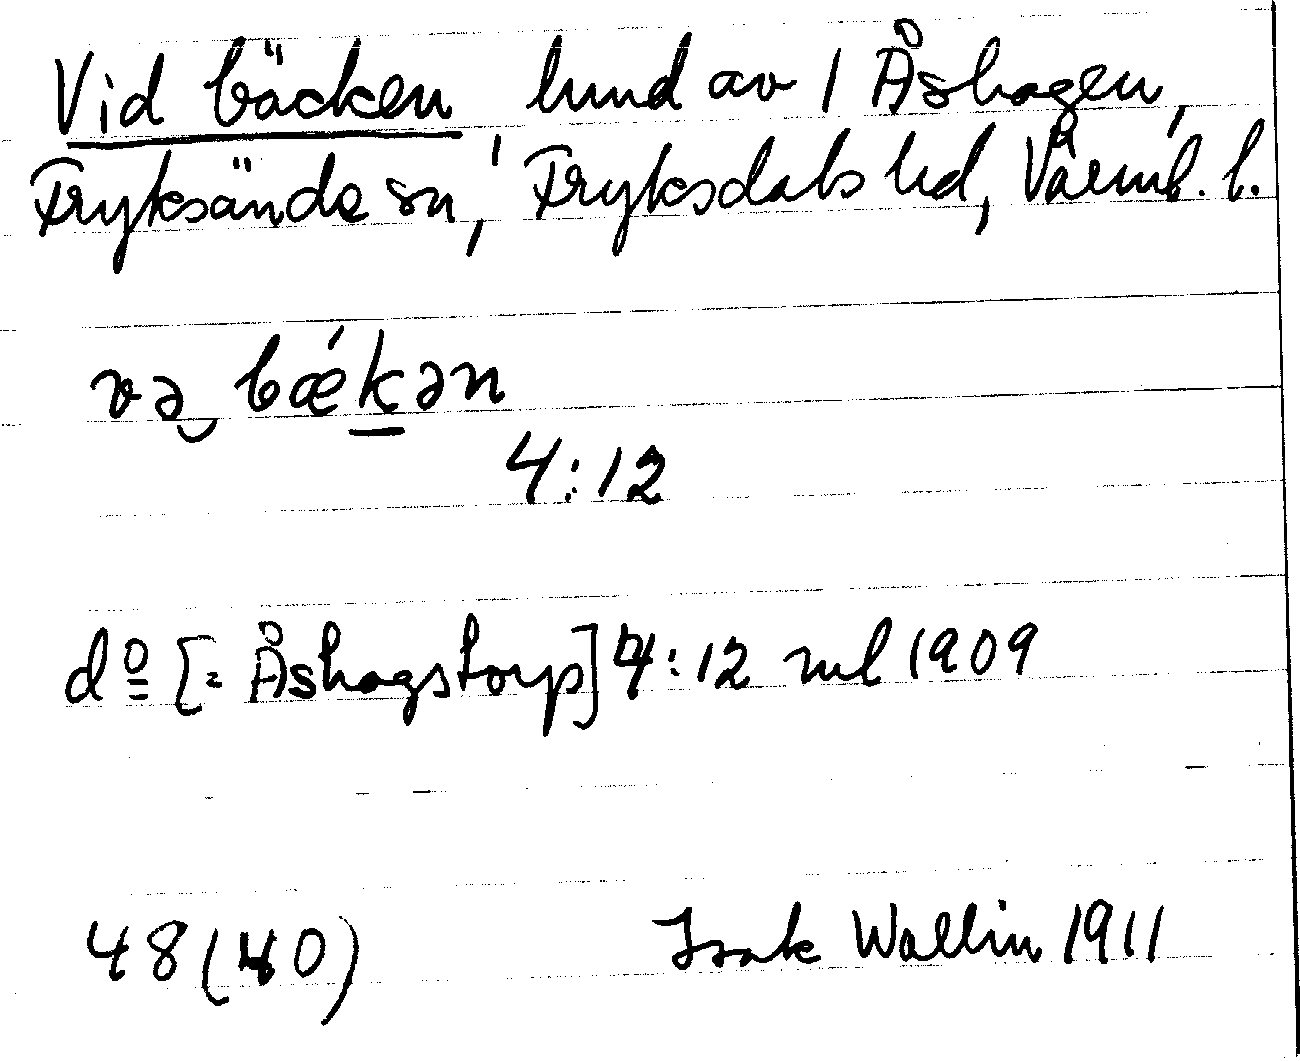 Vid bäcken, hmd av 1 Åshagen,
Fryksände sn, Fryksdals hd, Värml. l.
və bǽkən
4:12
do [= Åshagstorp] 4:12 ml 1909
48 (40)
Isak Wallin 1911